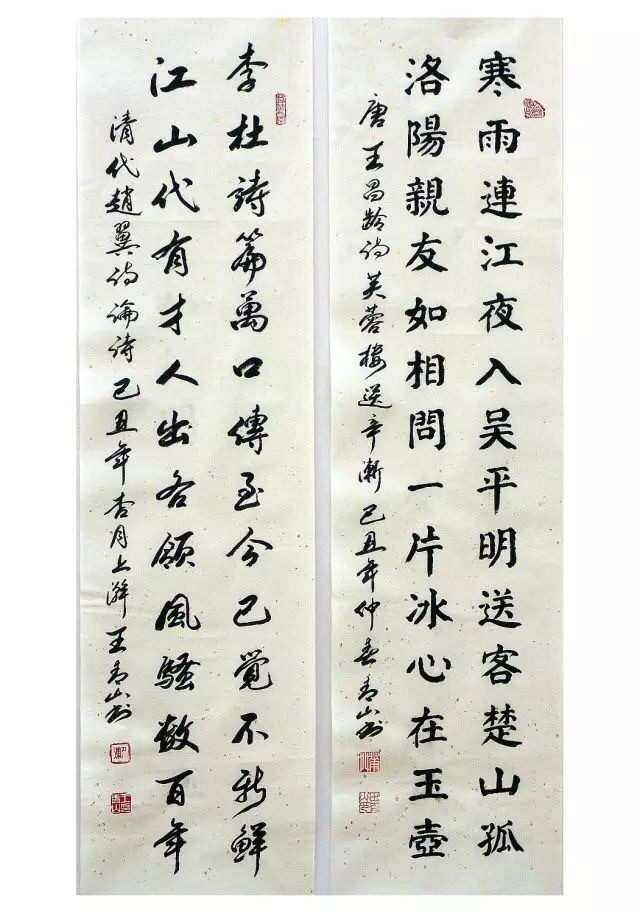 寒雨連江夜入吴平明送客楚山孤
洛陽親友如相問一片冰心在玉壺
唐王昌齡詩芙蓉樓送辛漸己丑年仲春青山書
李杜詩篇萬口傳至今已覺不新鮮
江山代有才人出各領風騷數百年
清代趙翼詩論詩己丑年杏月上澣王青山書